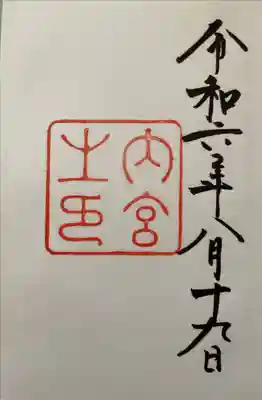 令和六年八月十九日
内宮
之印